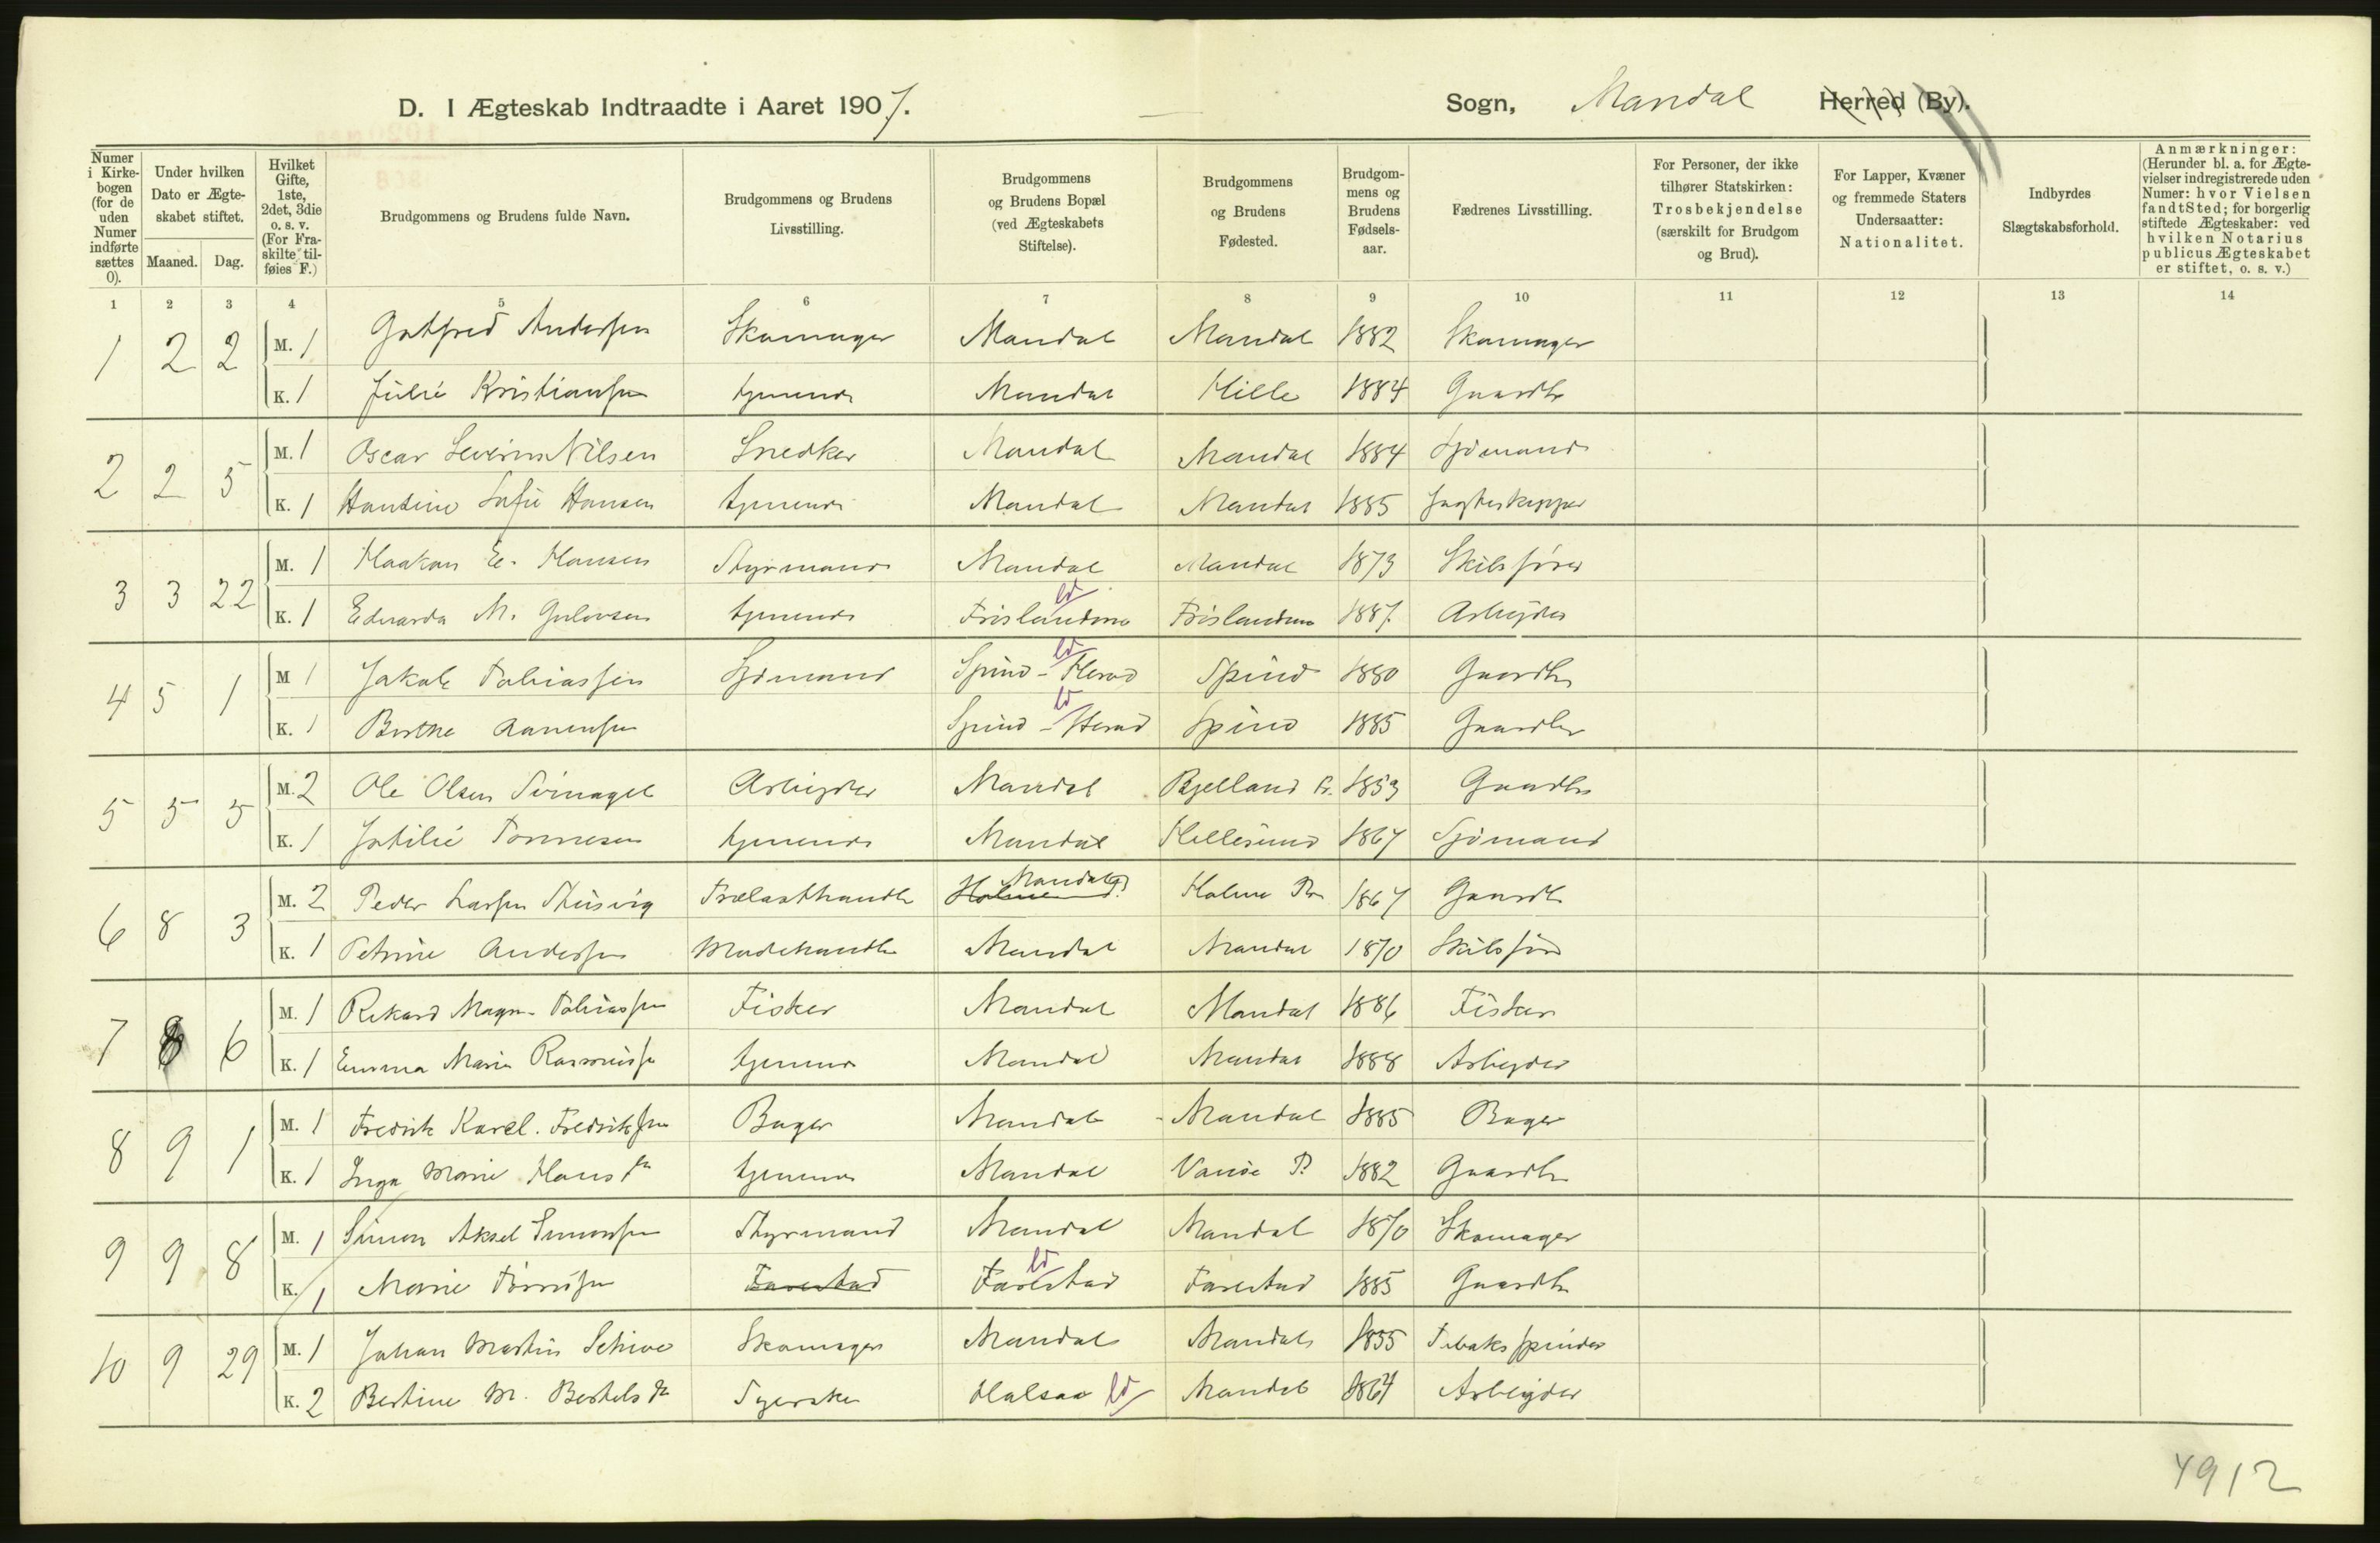 D. I Ægteskab Indtraadte i Aaret 1907. — Sogn, Mandal Herred (By).
Numer i Kirkebogen (for de uden Numer indførte sættes 0).
Under hvilken Dato er Ægteskabet stiftet.
Maaned. Dag.
Hvilket Gifte, 1ste, 2det, 3die o. s. v. (For Fraskilte tilføies F.)
Brudgommens og Brudens fulde Navn.
Brudgommens og Brudens Livsstilling.
Brudgommens og Brudens Bopæl (ved Ægteskabets Stiftelse).
Brudgommens og Brudens Fødested.
Brudgommens og Brudens Fødselsaar.
Fædrenes Livsstilling.
For Personer, der ikke tilhører Statskirken: Trosbekjendelse (særskilt for Brudgom og Brud).
For Lapper, Kvæner og fremmede Staters Undersaatter: Nationalitet.
Indbyrdes Slægtskabsforhold.
Anmærkninger: (Herunder bl. a. for Ægtevielser indregistrerede uden Numer: hvor Vielsen fandt Sted; for borgerlig stiftede Ægteskaber: ved hvilken Notarius publicus Ægteskabet er stiftet, o. s. v.)
1 2 3 4 5 6 7 8 9 10 11 12 13 14
1 2 2 M. 1 Gotfred Anderssen Skomager Mandal Mandal 1882 Skomager
K. 1 Julie Kristianssen tjenende Mandal Hille 1884 Gaardbr
2 2 5 M. 1 Oscar Severin Nilsen Snedker Mandal Mandal 1884 Sjømand
K. 1 Hansine Sofie Hansen tjenende Mandal Mandal 1885 Jagteskipper
3 3 22 M. 1 Haakon E. Hansen Styrmand Mandal Mandal 1873 Skibsfører
K. 1 Edvarda M. Gulovsen tjenende Frislandene ld Frislandene 1887. Arbeyder
4 5 1 M 1 Jakob Tobiassen Sjømand Spind - Herad ld Spind 1880 Gaardbr
K. 1 Berthe Aanensen Spind - Herad ld Spind 1885 Gaardbr
5 5 5 M. 2 Ole Olsen Arbeyder Mandal Bjelland P. 1853 Gaardbr
K. 1 Tønnesen tjenende Mandal Hellesund 1867 Sjømand
6 8 3 M. 2 Peder Larsen Trælasthandler Holme Mandal Holme Pr 1867 Gaardbr
K. 1 Petrine Andersen Modehandler Mandal Mandal 1870 Skibsfører
7 8 6 M. 1 Rikard Magn. Tobiassen Fisker Mandal Mandal 1886 Fisker
K. 1 Emma Marie Rasmussen tjenende Mandal Mandal 1888 Arbeyder
8 9 1 M. 1 Fredrik Karel. Fredriksen Bager Mandal Mandal 1885 Bager
K. 1 Inga Marie Hansdr tjenende Mandal Vanse P. 1882 Gaardbr
9 9 8 M. 1 Simon Aksel Simonsen Styrmand Mandal Mandal 1870 Skomager
K. 1 Marie Tørrisen Farestad Farestad ld Farestad 1885 Gaardbr
10 9 29 M. 1 Johan Martin Schive Skomager Mandal Mandal 1855 Tobakspinder
K. 2 Bertine M. Bertelsdr Syerske Halsaa ld Mandal 1864 Arbeyder
4912